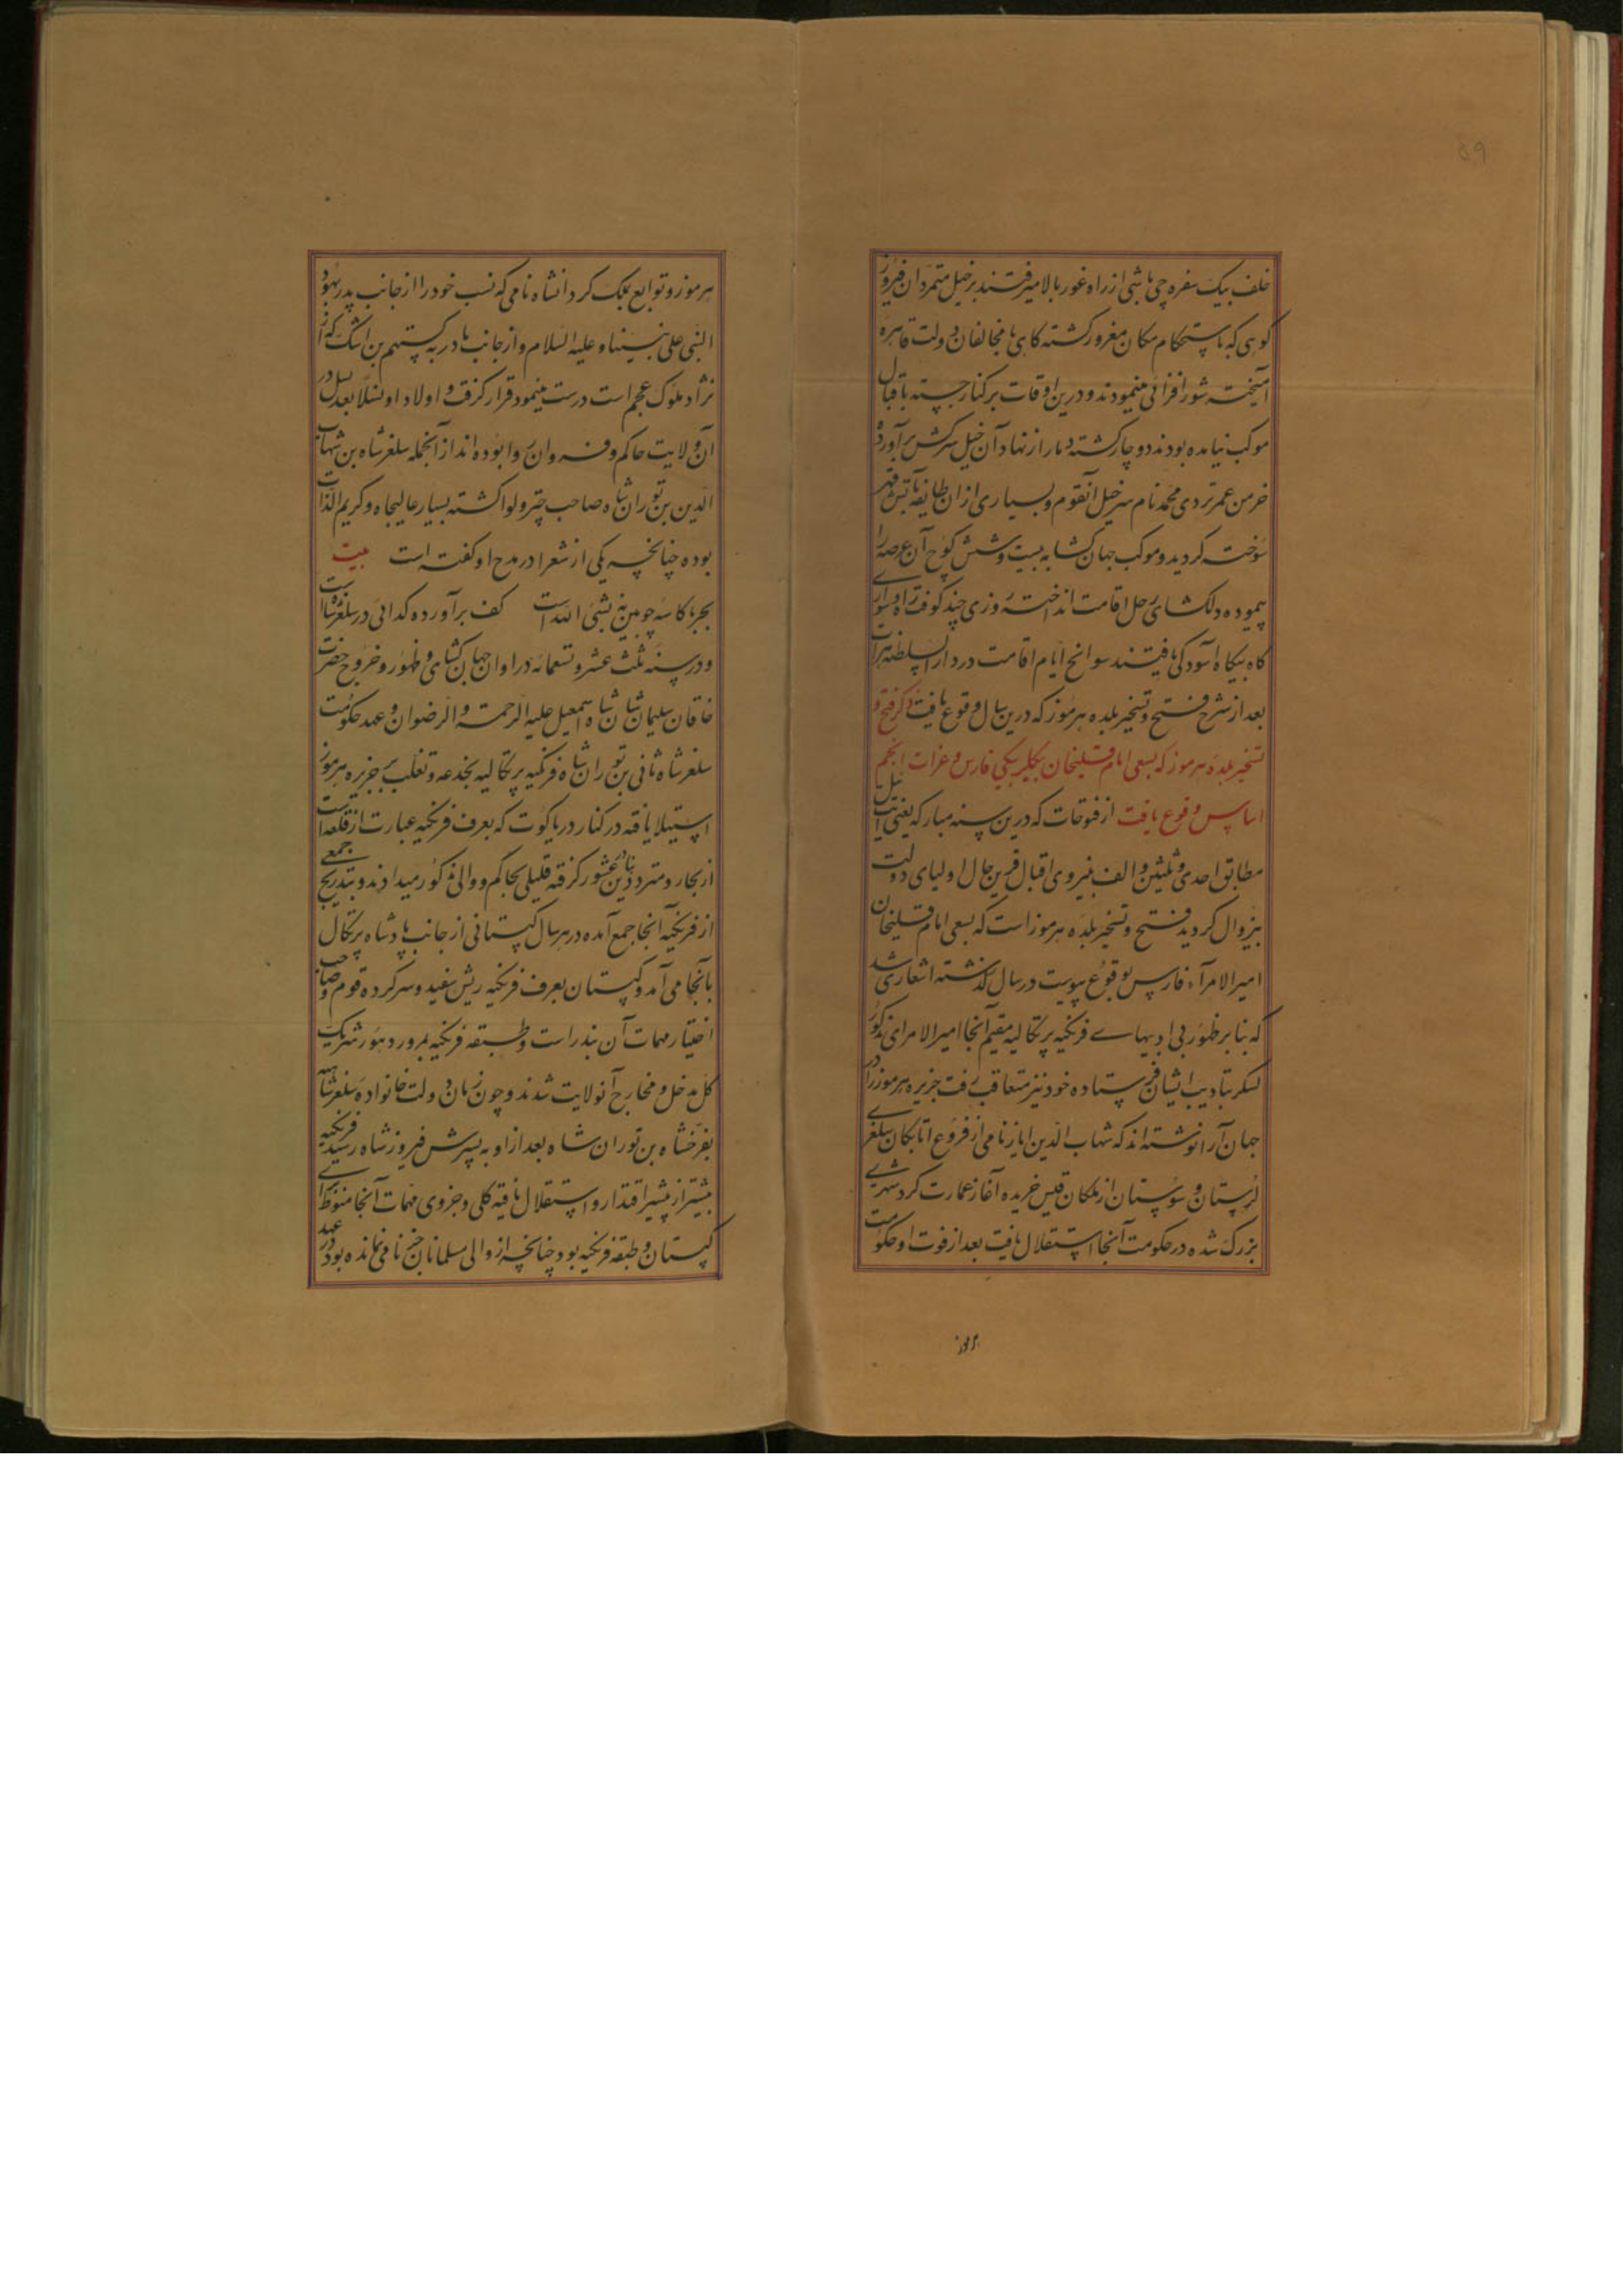 خلف بیک سفره چی باشی از راه غور بالا میرفتند بر خیل متمردان فیروز
کوهی که باستحکام مکان مغرور کشته کاهی با مخالفان دولت قاهره
آمیخته شور افزائی مینمودند و درین اوقات بر کنار جسته باقبال
موکب نیامده بودند دوچار کشته دمار از نهاد آن خیل سرکش برآورده
خرمن عمر تردی محمد نام سرخیل آنقوم و بسیاری از ان طایفه بآتش قهر
سوخته کردید و موکب جهان کشا به بیست و شش کوچ آن عرصه را
پیموده دلکشای رحل اقامت انداخته روزی چند کوفت راه و سواری
کاه بیکاه آسودکی یافتند سوانح ایام اقامت در دار السلطنه هرات
بعد از شرح فتح و تسخیر بلده هرموز که درین سال وقوع یافت ذکر فتح و
تسخیر بلده هرموز که بسعی امام قلیخان بیکلربیکی فارس و غزات انجم
اساس وقوع یافت از فتوحات که درین سنه مبارکه یعنی ایت ئیل
مطابق احدی و ثلثین و الف بنیروی اقبال قرین حال اولیای دولت
بیزوال کردید فتح و تسخیر بلده هرموز است که بسعی امام قلیخان
امیر الامرآء فارس بوقوع پیوست در سال کذشته اشعاری شد
که بنا بر ظهور بی ادبیهاے فرنکیه پرتکالیه مقیم آنجا امیر الامرای مذکور
لسکر بتادیب ایشان فرستاده خود نیز متعاقب رفت جزیره هرموز را در
جهان آرا نوشته اند که شهاب الدین ایاز نامی از فروع اتابکان سلغرے
لرستان و سوستان از ملکان قیس خریده آغاز عمارت کرد شهرے
بزرک شده در حکومت آنجا استقلال یافت بعد از فوت او حکومت
هرموز
هرموز و توابع بملک کردانشاه نامی که نسب خود را از جانب پدر بهود
النبی علی نبینا و علیه السلام و از جانب مادر به رستهم بن اشک که از
نژاد ملوک عجم است درست مینمود قرار کرفت و اولاد او نسلا بعد نسل در
آن ولایت حاکم و فرمان روا بوده اند از آنجمله سلغر شاه بن شهاب
الدین بن توران شاه صاحب چتر و لوا کشته بسیار عالیجاه و کریم الذات
بوده چنانچه یکی از شعرا در مدح او کفته است بیت
بحر با کاسه چوبین به شئ الله است کف برآورده کدائی در سلغر شاه است
و در سنه ثلث عشر و تسعمائه در اوان جهان کشای و ظهور و خروج حضرت
خاقان سلیمان شان شاه اسمعیل علیه الرحمة و الرضوان و عهد حکومت
سلغر شاه ثانی بن توران شاه فرنکیه پرتکالیه بخدعه و تغلب بر جزیره هرموز
استیلا یافته در کنار دریا کوت که بعرف فرنکیه عبارت از قلعه است
از تجار و مترددین بنادر عشور کرفته قلیلی بحاکم و والی مذکور میدادند و بتدریج جمعے
از فرنکیه آنجا جمع آمده در هر سال کپستانی از جانب پادشاه پرتکال
بآنجا می آمد و کپستان بعرف فرنکیه ریش سفید و سرکرده قوم و صاحب
اختیار مهمات آن بندر است و طبقه فرنکیه بمرور دهور شریک
کل مدخل و مخارج آنولایت شدند و چون زمان دولت خانواده سلغر شاهیه
بفرخشاه بن توران شاه بعد از او به پسرش فیروز شاه رسید فرنکیه
بیشتر از پیشتر اقتدار و استقلال یافته کلی و جزوی مهمات آنجا منوط براے
کپستان و طبقه فرنکیه بود چنانچه از والی مسلمانان جز نامی نمانده بود در عهد